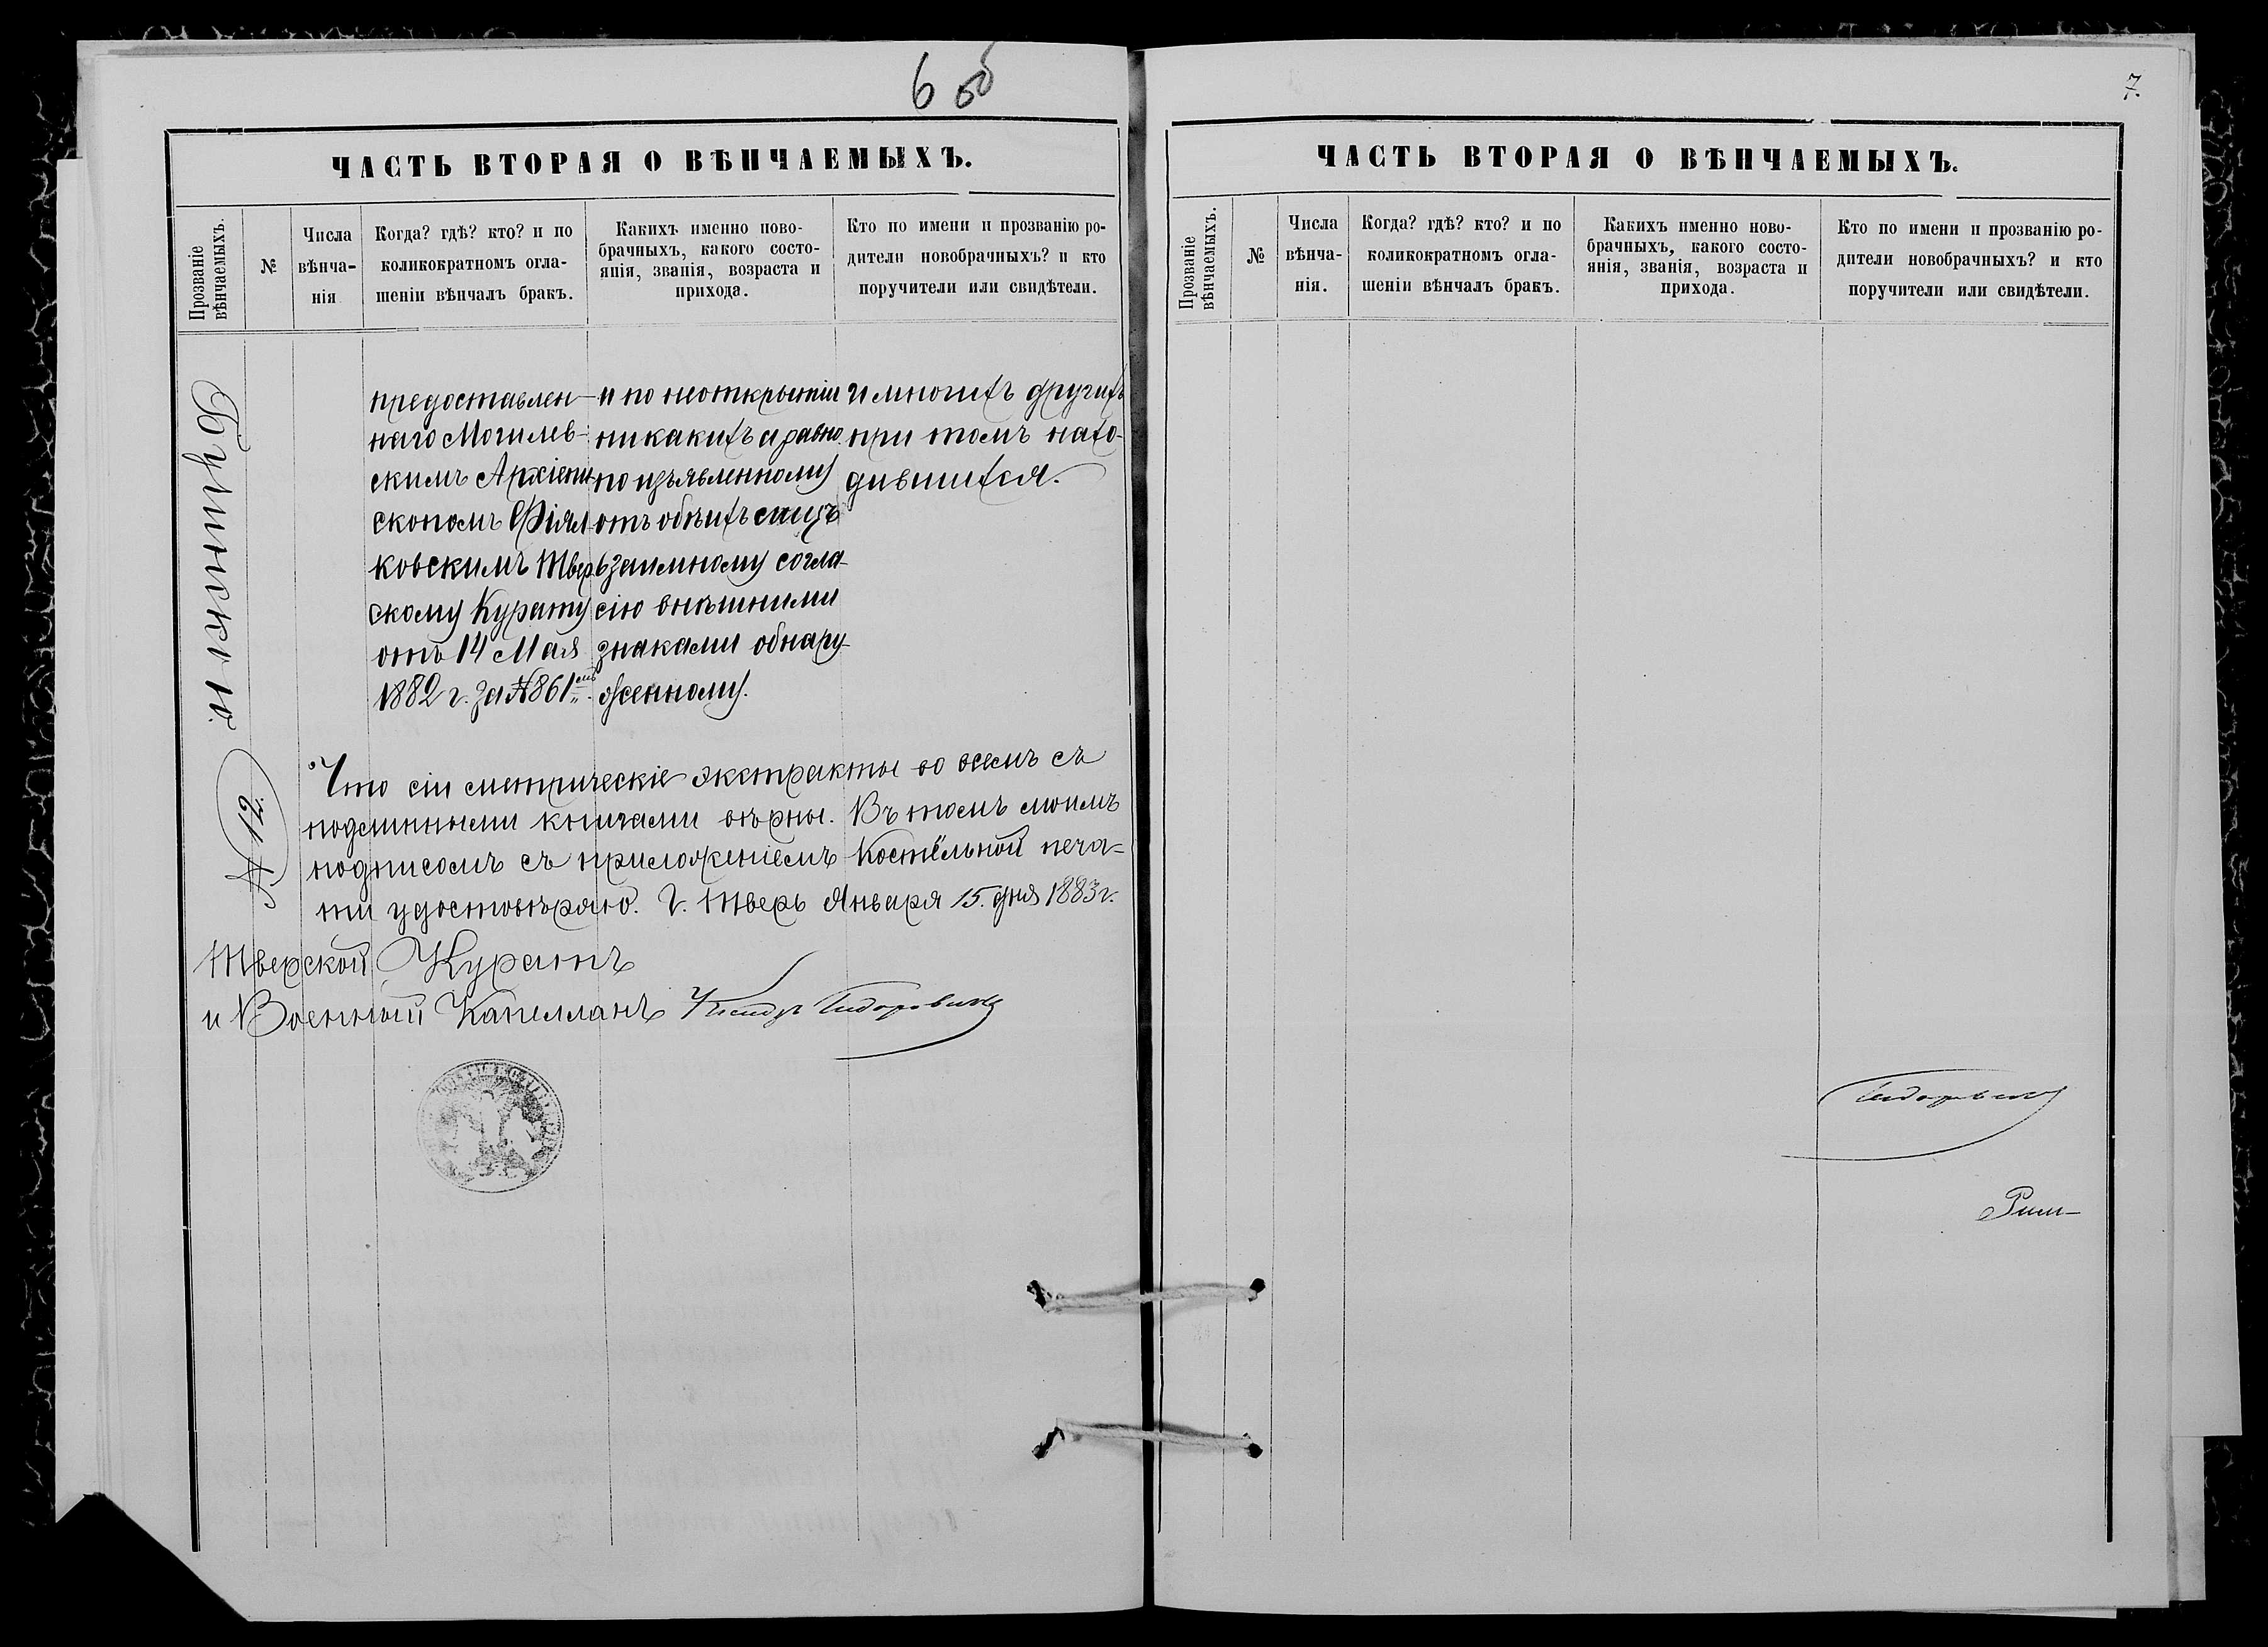 6 об
ЧАСТЬ ВТОРАЯ О ВѢНЧАЕМЫХЪ.
Прозваніе вѣнчаемыхъ.
№
Числа вѣнча-
нія
Когда? гдѣ? кто? и по
коликократномъ огла-
шеніи вѣнчалъ бракъ.
Какихъ именно ново-
брачныхъ, какого состо-
янія, званія, возраста и
прихода.
Кто по имени и прозванію ро-
дители новобрачныхъ? и кто
поручители или свидѣтели.
предоставлен-
наго Могилев-
скимъ Архіепи-
скопомъ Фіял-
ковскимъ Твер
скому Курату
отъ 14 Мая
1882 г. за №861мъ.
и по неоткрытіи
никакихъ а равно
по изъявленному
отъ обѣихъ лицъ
взаимному согла-
сію внѣшними
знаками обнару-
женному.
и многихъ другихъ
при томъ нахо-
дившихся.
№ 12.
Что сіи метрическіе экстракты во всемъ съ
подлинными книгами вѣрны. Въ томъ моимъ
подписомъ съ приложеніемъ Костёльной печа=
ти удостовѣряю. Г. Тверь Января 15. дня 1883 г.
Тверской Куратъ
и Военный Капелланъ
7.
ЧАСТЬ ВТОРАЯ О ВѢНЧАЕМЫХЪ.
Прозваніе вѣнчаемыхъ.
№
Числа вѣнча-
нія.
Когда? гдѣ? кто? и по
коликократномъ огла-
шеніи вѣнчалъ бракъ.
Какихъ именно ново-
брачныхъ, какого состо-
янія, званія, возраста и
прихода.
Кто по имени и прозванію ро-
дители новобрачныхъ? и кто
поручители или свидѣтели.
Рим-